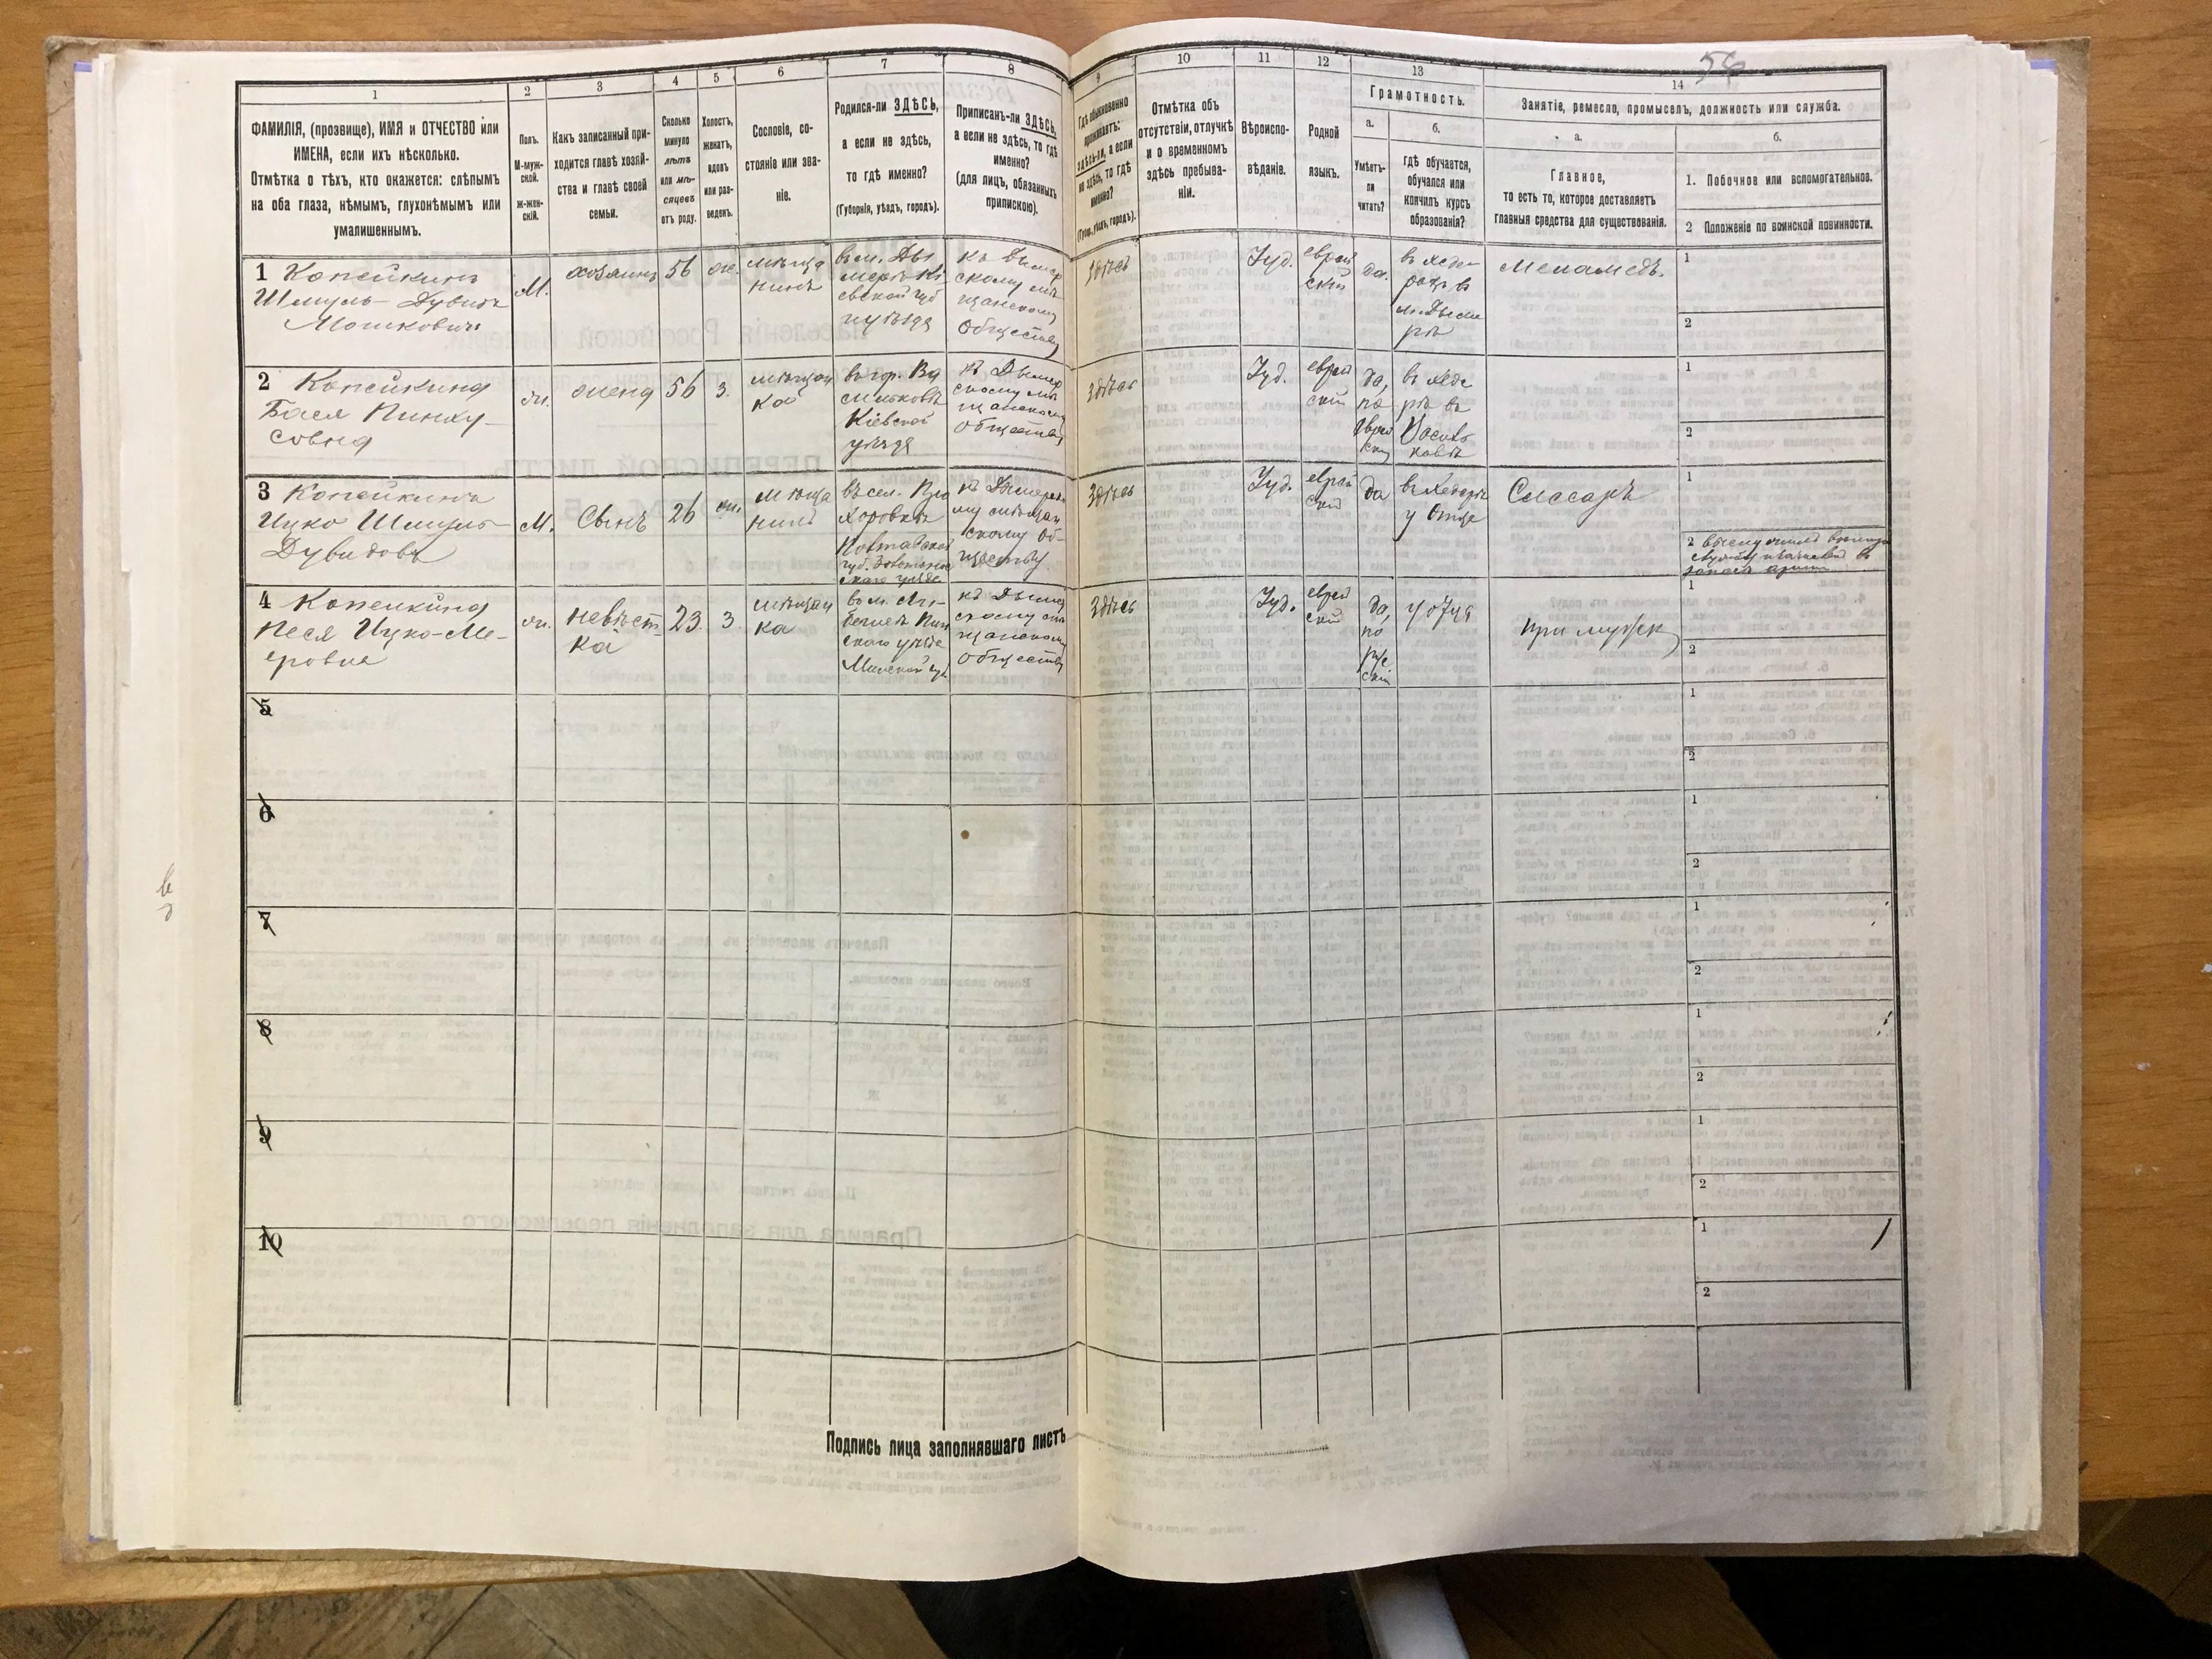 54
1
2
3
4
5
6
7
8
9
10
11
12
13
14
ФАМИЛІЯ, (прозвище), ИМЯ и ОТЧЕСТВО или
ИМЕНА, если ихъ нѣсколько.
Отмѣтка о тѣхъ, кто окажется: слѣпымъ
на оба глаза, нѣмымъ, глухонѣмымъ или
умалишеннымъ.
Полъ.
М-муж-
ской.
ж-жен-
скій.
Какъ записанный при-
ходится главѣ хозяй-
ства и главѣ своей
семьи.
Сколько
минуло
лѣтъ
или мѣ-
сяцевъ
отъ роду.
Холостъ,
женатъ,
вдовъ
или раз-
веденъ.
Сословіе, со-
стояніе или зва-
ніе.
Родился-ли ЗДѢСЬ,
а если не здѣсь,
то гдѣ именно?
(Губернія, уѣздъ, городъ).
Приписанъ-ли ЗДѢСЬ,
а если не здѣсь, то гдѣ
именно?
(для лицъ, обязанныхъ
припискою).
Гдѣ обыкновенно
проживаетъ:
здѣсь-ли, а если
не здѣсь, то гдѣ
именно?
(Губер., уѣздъ, городъ).
Отмѣтка объ
отсутствіи, отлучкѣ
и о временномъ
здѣсь пребыва-
ніи.
Вѣроиспо-
вѣданіе.
Родной
языкъ.
Грамотность.
а.
Умѣетъ-
ли
читать?
б.
гдѣ обучается,
обучался или
кончилъ курсъ
образованія?
Занятіе, ремесло, промыселъ, должность или служба.
а.
Главное,
то есть то, которое доставляетъ
главныя средства для существованія.
б.
1. Побочное или вспомогательное.
2 Положеніе по воинской повинности.
1 Копейкинъ
Шмуль-Дувидъ
Мошковичъ
М.
хозяинъ
56
ж.
мѣща
нинъ
въ м. Ды
мерѣ Кі
евской губ
и уѣзда
къ Дымер
скому мѣ
щанскому
обществу
здѣсь
Іуд.
еврей
скій
да.
въ хеде
рахъ въ
м. Дыме
рѣ
Меламедъ.
1
2
2 Копейкина
Бася Пинху-
совна
ж.
жена
56
з.
мѣщан
ка
въ гор. Ва
сильковѣ
Кіевской
уѣзда
къ Дымер
скому мѣ
щанскому
обществу
здѣсь
Іуд.
еврей
скій
да,
по
Еврей
ски
въ хеде
рѣ въ
Василь
ковѣ
1
2
3 Копейкинъ
Ицко Шмуль-
Дувидовъ
М.
Сынъ
26
ж.
мѣща
нинъ
въ сел. Про
хоровкѣ
Полтавской
губ. Золотонош
скаго уѣзда
къ Дымерско
му мѣщан
скому об-
ществу
здѣсь
Іуд.
еврей
скій
да
въ хедерѣ
у Отца
Слесарь
1
2
запасъ арміи
4 Копейкина
Песя Ицко-Ме-
еровна
ж.
невѣст-
ка
23.
з
мѣщан
ка
въ м.
Пин
скаго уѣзда
Минской губ
къ Дымер
скому мѣ
щанскому
обществу
здѣсь
Іуд.
еврей
скій
да,
по
рус
ски
у отца
При мужѣ
1
2
5
1
2
6
1
2
7
1
2
8
1
2
9
1
2
10
1
2
Подпись лица заполнявшаго листъ